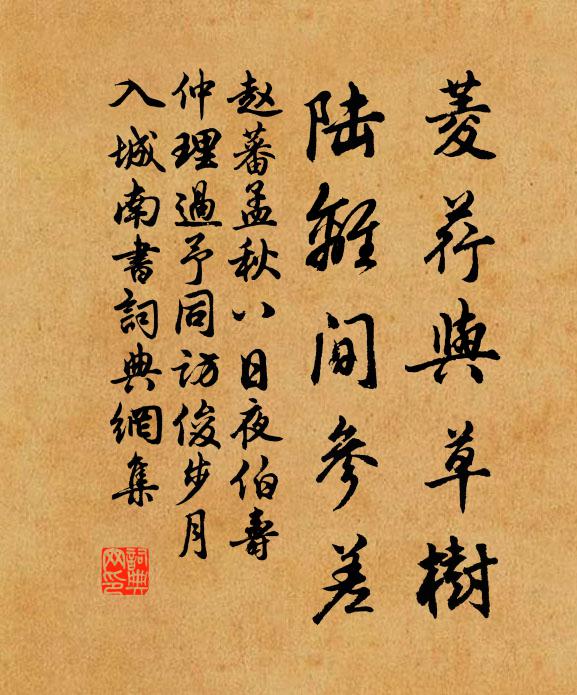 菱荇與草樹
陸離間參差
赵蕃孟秋八日夜伯壽
仲理過予同访俊步月
入城南書詞典網集
詞典网印